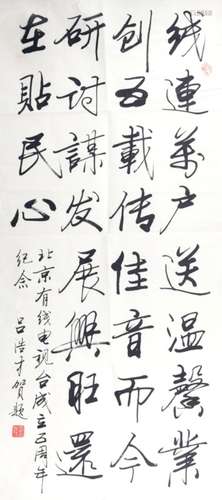 线連萬户送温馨業
创五載传佳音而今
研讨謀发展興旺還
在貼民心
北京有线电视台成立五周年
纪念
吕浩才贺题